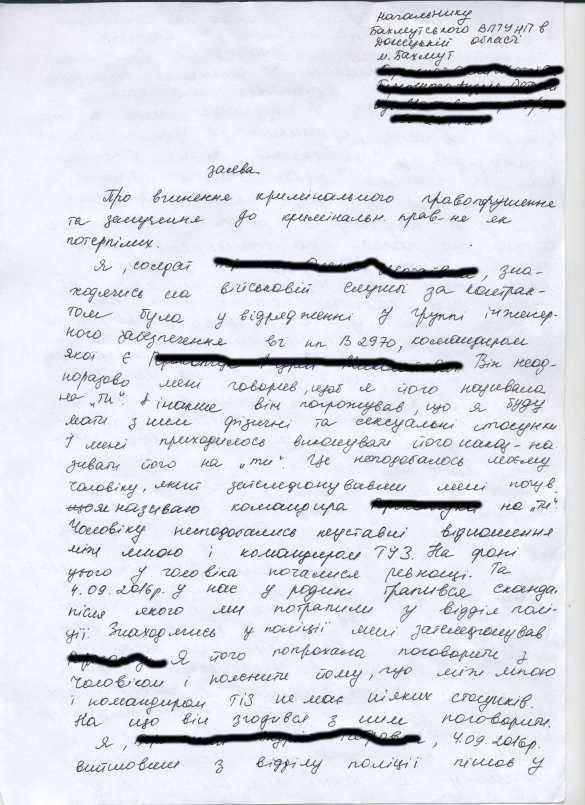 начальнику
Бахмутського ВПГУНП в
Донецькій області
м. Бахмут
заява.
Про вчинення кримінального правопорушення
та залучення до кримінальн. прав-не як
потерпілих.
Я, солдат , зна-
ходячись на військовій службі за контрак-
том була у відрядженні у группі інженер-
ного забезпечення вч пп В2970, командиром
якої є Він неод-
норазово мені говорив, щоб я його називала
на „ти". інакше він погрожував, що я буду
мати з ним фізичні та сексуальні стосунки
І мені приходилось виконувати його наказ - на-
зивати його на „ти". Це неподобалось моєму
чоловіку, який зателефонувавши мені почув
що я називаю командира на „ти".
Чоловіку неподобались неуставні відношення
між мною і командиром ГІЗ. На фоні
цього у чоловіка почалися ревнощі. Та
4.09.2016р. у нас у родині трапився сканда.
після якого ми потрапили у відділ полі-
ції. Знаходячись у поліції мені зателефонував
Я його попрохала поговорити з
чоловіком і пояснити йому, що між мною
і командиром ГІЗ не має ніяких стосунків.
На що він згодився з ним поговорити.
Я, , 4.09.2016р.
вийшовши з відділу поліції пішов у